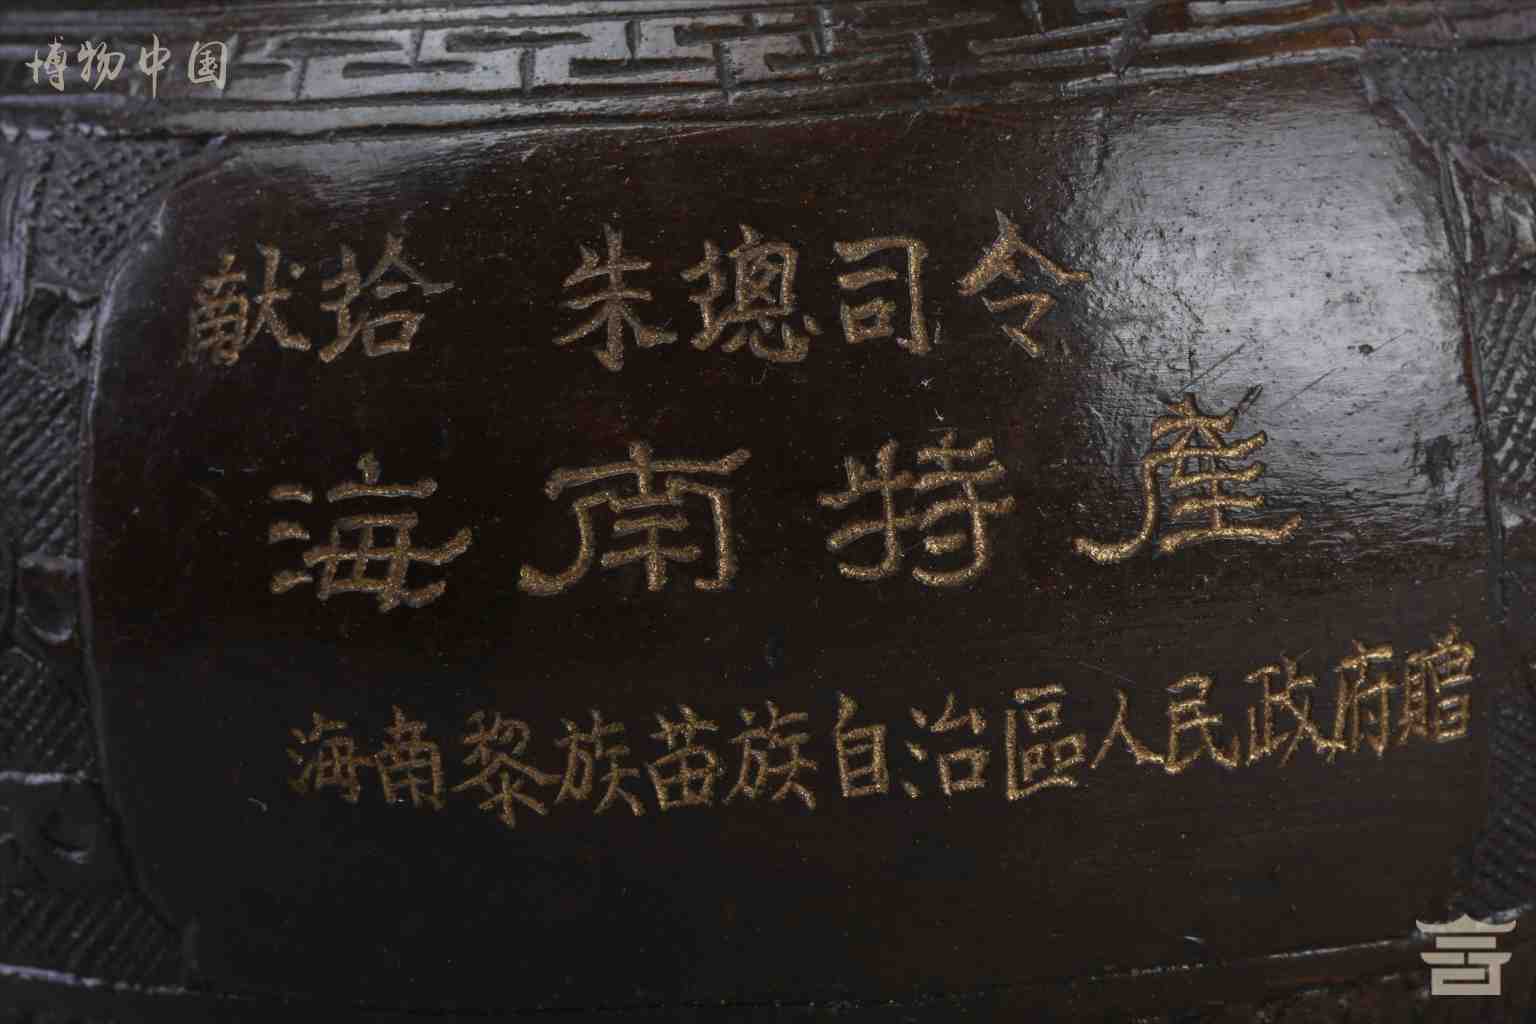 博物中国
献拾 朱璁司令
海南特產
海南黎族苗族自治區人民政府贈